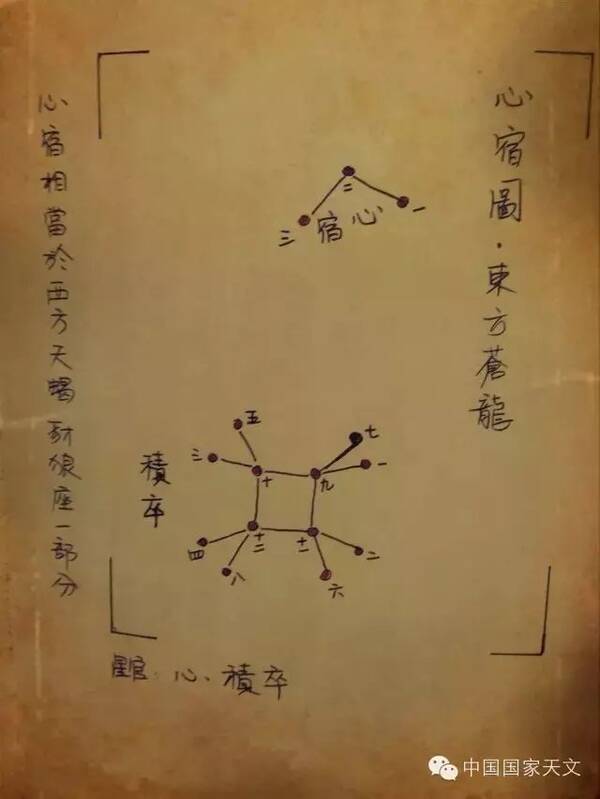 心宿圖·東方蒼龍
二
一
三
宿心
五
三
十
七
九
一
積卒
四
十二
十一
二
八
六
心宿相當於西方天蝎豺狼座一部分
星官:心、積卒
中国国家天文